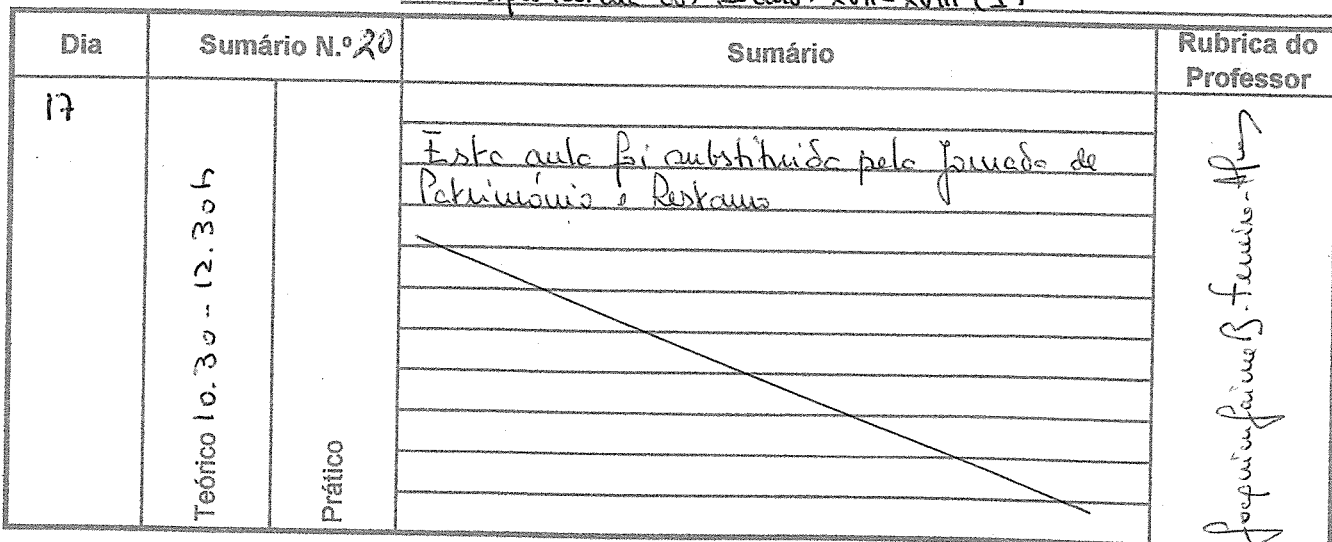 XVII - XVIII (I)
Dia
Sumário N.º 20
Sumário
Rubrica do
Professor
17
Teórico 10.30 - 12.30h
Prático
Esta aula foi substituída pela Jornada de
Património e Restauro
Joaquim Jaime B. Ferreira-Alves